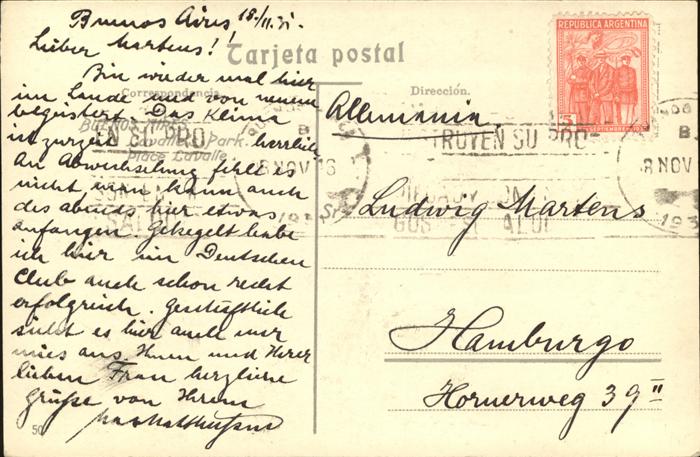 Buenos Aires 18./11.31.
Lieber Martens!
Bin wieder mal hier
im Lande und von neuem
begeistert. Das Klima
ist zurzeit herrlich
An Abwechselung fehlt es
nicht, man kann auch
des abends hier etwas
anfangen. Gekegelt habe
ich hier im Deutschen
Club auch schon recht
erfolgreich. Geschäftlich
sieht es hier auch nur
mies aus. Ihnen und Ihrer
lieben Frau herzliche
Grüße von Ihrem
50
Tarjeta postal
Correspondencia.
Buenos Aires
Lavalle Park.
Place Lavalle
Dirección.
REPUBLICA ARGENTINA
5
SEPTIEMBRE
TRUYEN SU PRO
8 NOV 16
8 NOV
B
193
Allemania.
Sr.
Ludwig Martens
Hamburgo
Hornerweg 39 II